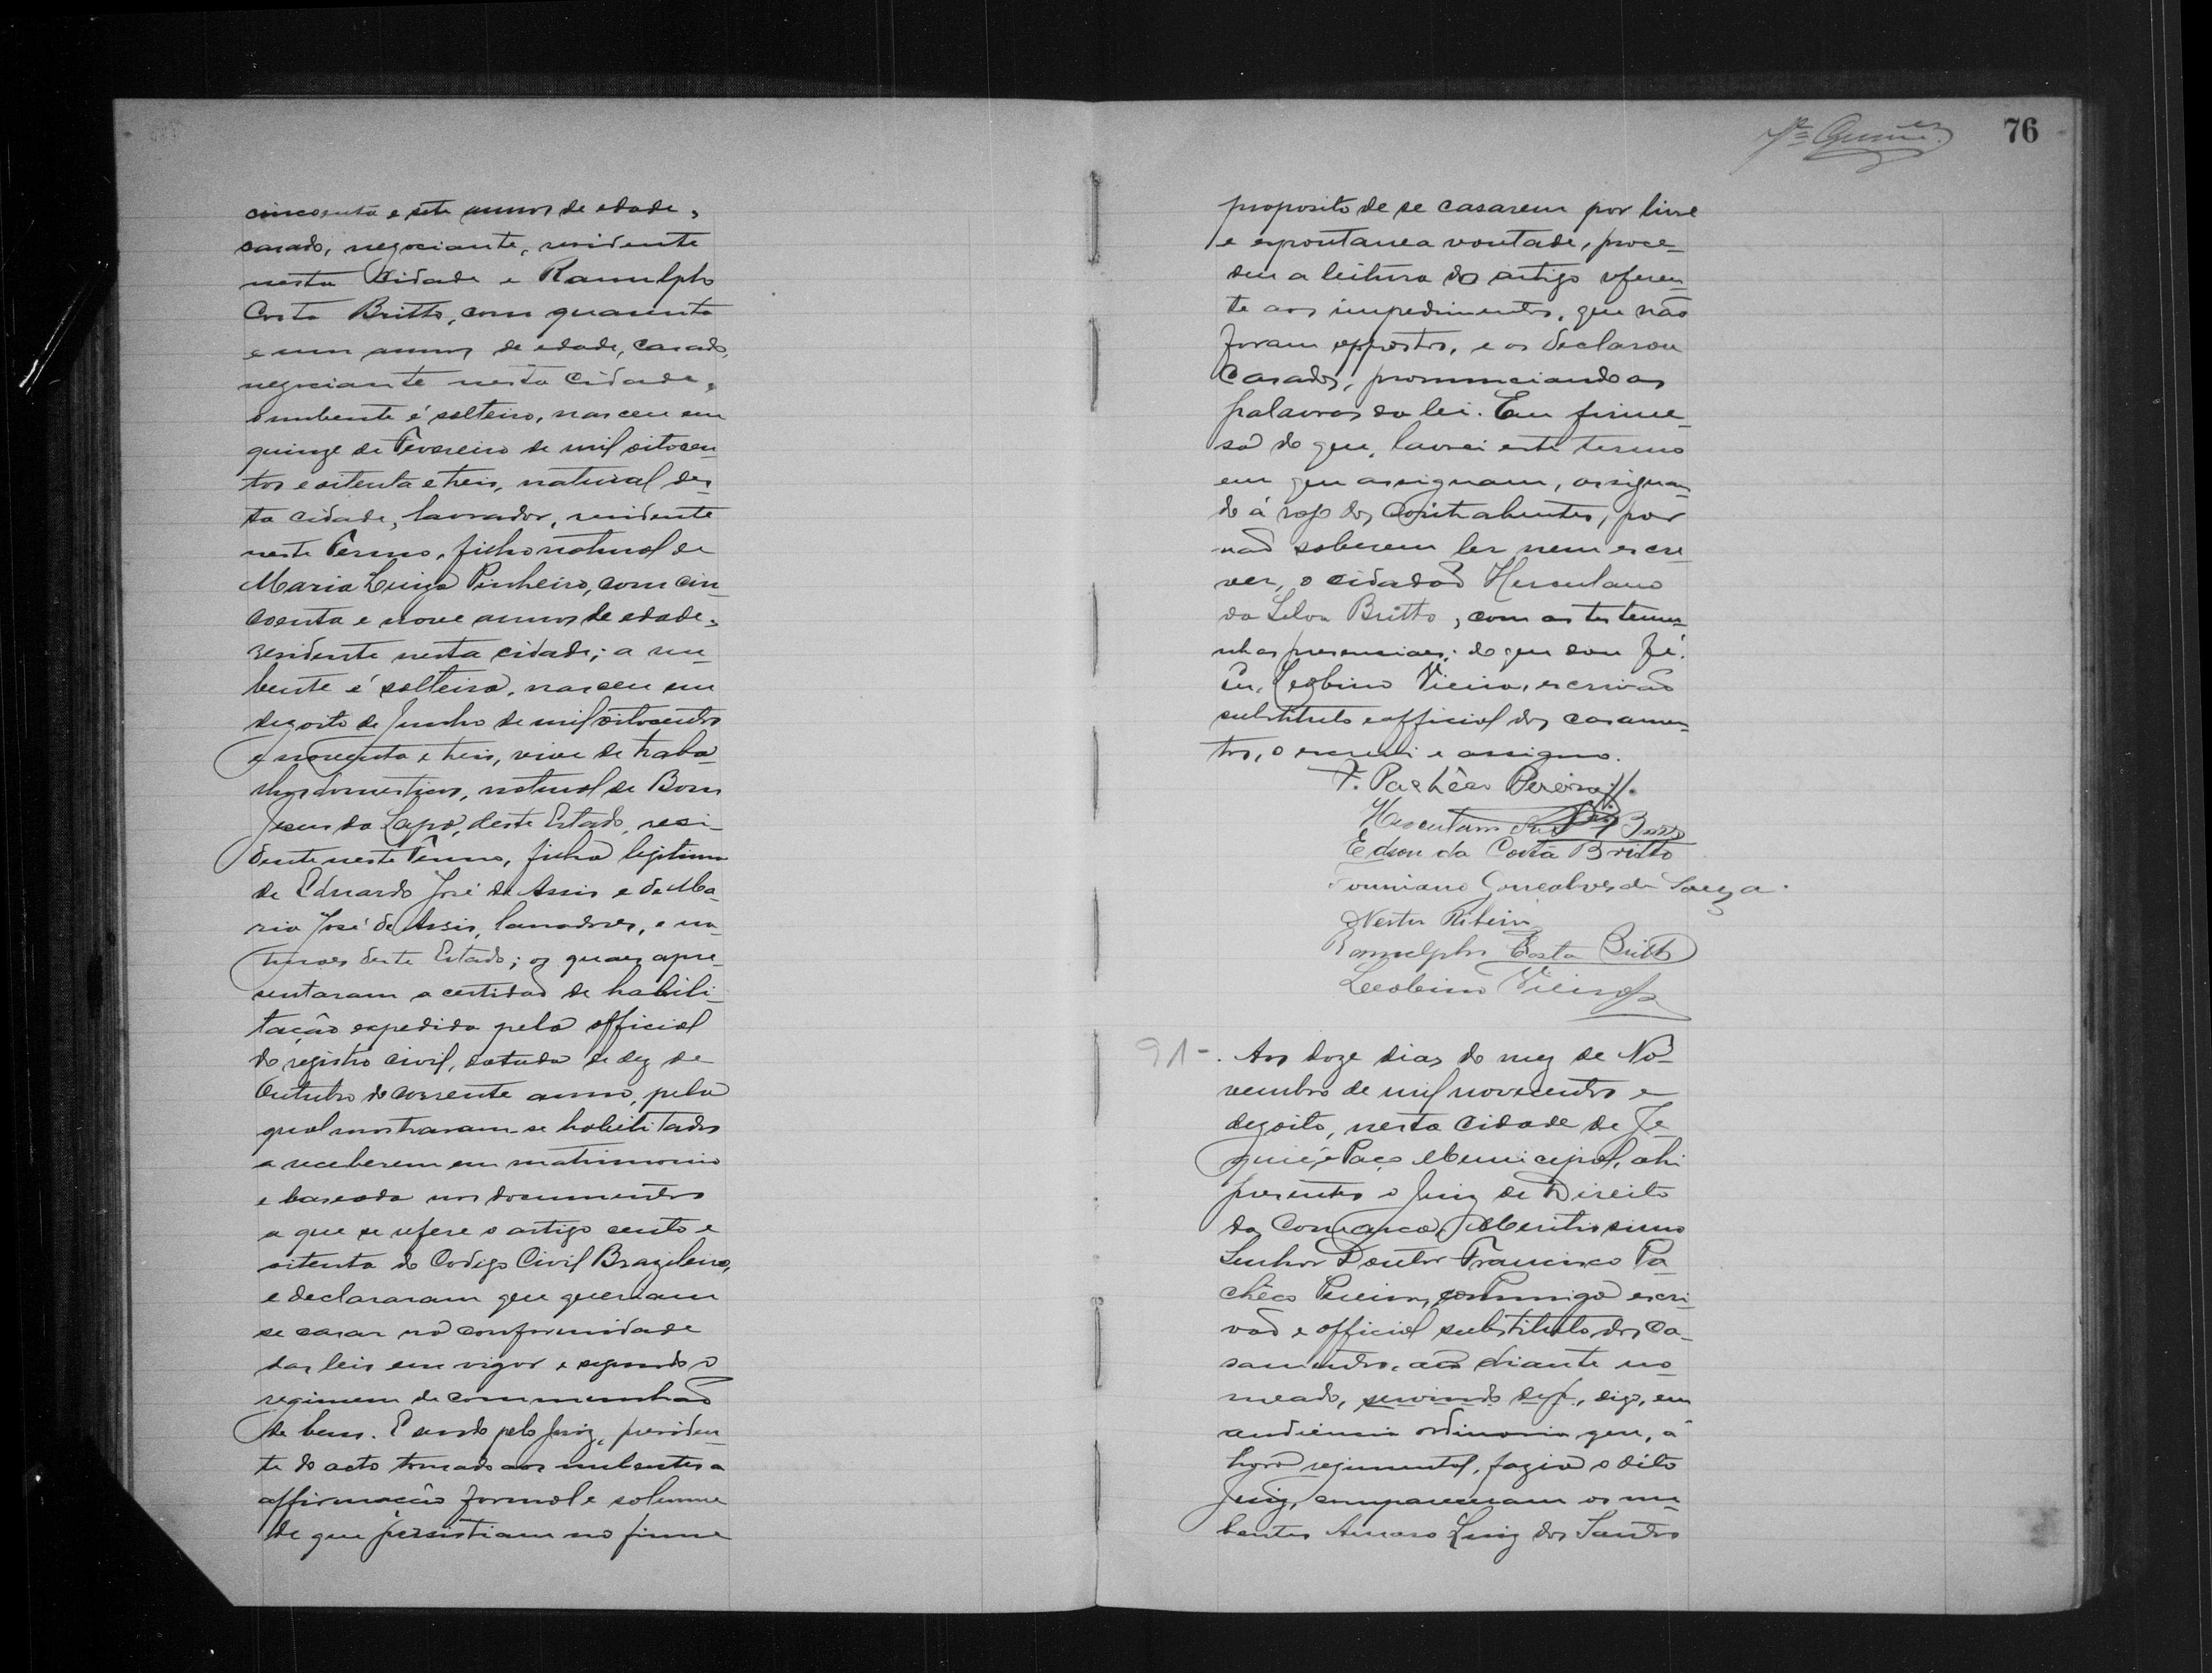 cincoenta e sete annos de edade,
casado, negociante, residente
nesta Cidade e Ranulpho
Costa Britto, com quarenta
e um annos de edade, casado,
negociante nesta Cidade,
o nubente é solteiro, nasceu em
quinze de Fevereiro de mil oitocen-
tos e oitenta e treis, natural des-
ta cidade, lavrador, residente
neste Termo, filho natural de
Maria Luiza Pinheiro, com cin-
coenta e nove annos de edade,
residente nesta cidade; a nu-
bente é solteira, nasceu em
dezoito de Junho de mil oitocentos
e noventa e treis, vive de traba-
lhos domesticos, natural de Bom
Jesus da Lapa, deste Estado, resi-
dente neste Termo, filha legitima
de Eduardo José de Assis e de Ma-
ria José de Assis, lavradores, e na-
turaes deste Estado; os quaes apre-
sentaram a certidão de habili-
tação expedida pelo official
do registro civil, datada de dez de
Outubro do corrente anno, pela
qual mostraram-se habilitados
a receberem em matrimonio
e baseada nos documentos
a que se refere o artigo cento e
oitenta do Codigo Civil Brazileiro,
e declararam que queriam
se casar na conformidade
das leis em vigor e segundo o
regimem de communhão
de bens. E sendo pelo Juiz, presiden-
te do acto tomado aos nubentes a
affirmação formal e solemne
de que persistiam no firme
76
proposito de se casarem por livre
e espontanea vontade, proce-
deu a leitura do artigo referen-
te aos impedimentos, que não
foram oppostos, e os declarou
casados, pronunciando as
palavras da lei. Em firme-
sa do que, lavrei este termo
em que assignam, assignan-
do á rogo dos Contrahentes, por
não saberem ler nem escre-
ver, o cidadão Herculano
da Silva Britto, com as testemu-
nhas presenciaes; do que dou fé.
Eu, Leobino Vieira, escrivão
substituto e official dos casamen-
tos, o escrevi e assigno.
F. Pachêco Pereira
Herculano da Silva Britto
Edson da Costa Britto
Gonçalves de Souza.
Nestor Ribeiro
Ranulpho Costa Britto
Leobino Vieira
91-. Aos doze dias do mez de No-
vembro de mil novecentos e
dezoito, nesta Cidade de Je-
quié, e Paço Municipal, ahi
presentes o Juiz de Direito
da Comarca, Meritissimo
Senhor Doutor Francisco Pa-
chêco Pereira, commigo escri-
vão e official substituto dos Ca-
samentos, ao diante no-
meado, servindo de, digo, em
audiencia ordinaria que, á
hora regimental, fazia o dito
Juiz, compareceram os nu-
bentes Amaro Luiz dos Santos